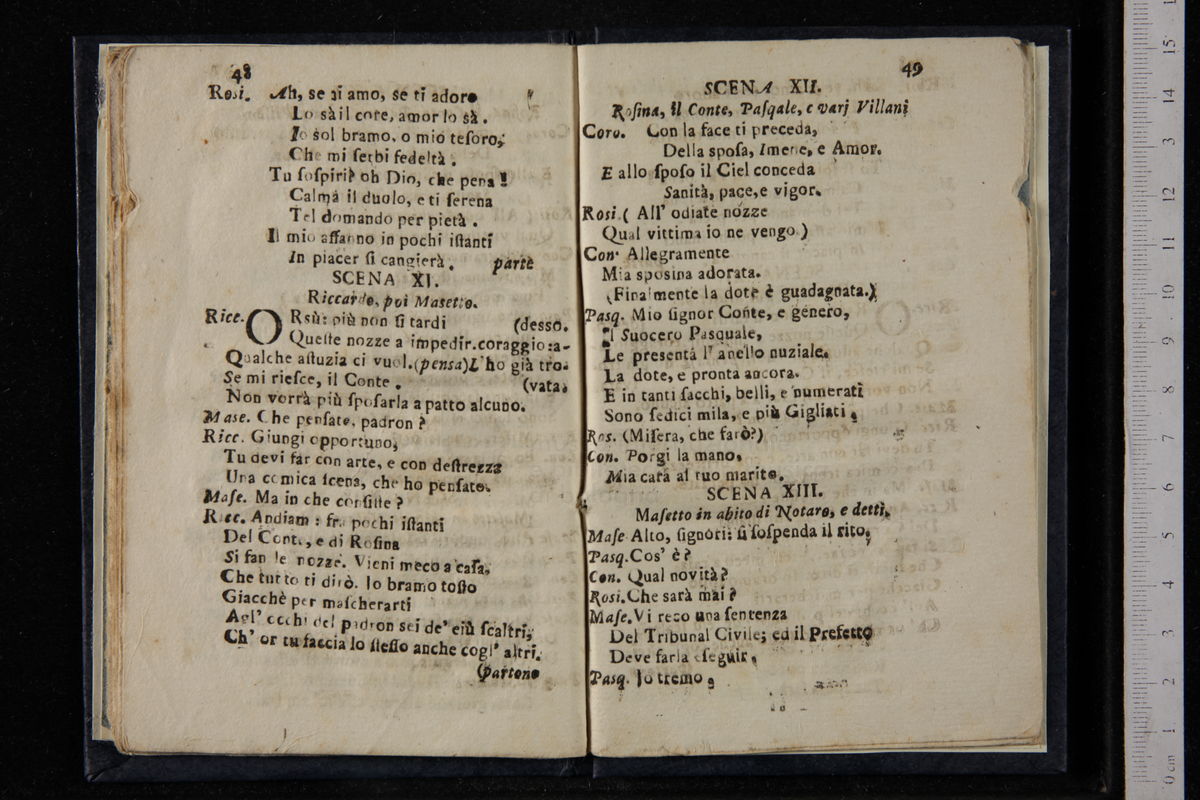 48
Rosi. Ah, se ti amo, se ti adoro
Lo sà il core, amor lo sà.
Io sol bramo, o mio tesoro,
Che mi serbi fedeltà.
Tu sospiri? oh Dio, che pena!
Calma il duolo, e ti serena
Tel domando per pietà.
Il mio affanno in pochi istanti
In piacer si cangierà. parte
SCENA XI.
Riccardo, poi Masetto.
Ricc. ORsù: più non si tardi (desso.
Queste nozze a impedir. coraggio: a-
Qualche astuzia ci vuol. (pensa) L'ho già tro-
Se mi riesce, il Conte. (vata.
Non vorrà più sposarla a patto alcuno.
Mase. Che pensate, padron?
Ricc. Giungi opportuno,
Tu devi far con arte, e con destrezza
Una comica scena, che ho pensato.
Mase. Ma in che consiste?
Ricc. Andiam: fra pochi istanti
Del Conte, e di Rosina
Si fan le nozze. Vieni meco a casa,
Che tutto ti dirò. Io bramo tosto
Giacchè per mascherarti
Agl' occhi del padron sei de' più scaltri,
Ch' or tu faccia lo stesso anche cogl' altri.
(partono
49
SCENA XII.
Rosina, il Conte, Pasqale, e varj Villani
Coro. Con la face ti preceda,
Della sposa, Imene, e Amor.
E allo sposo il Ciel conceda
Sanità, pace, e vigor.
Rosi. ( All' odiate nozze
Qual vittima io ne vengo.)
Con. Allegramente
Mia sposina adorata.
(Finalmente la dote è guadagnata.)
Pasq. Mio signor Conte, e genero,
Il Suocero Pasquale,
Le presenta l' anello nuziale.
La dote, e pronta ancora.
E in tanti sacchi, belli, e numerati
Sono sedici mila, e più Gigliati.
Ros. (Misera, che farò?)
Con. Porgi la mano,
Mia cara al tuo marito.
SCENA XIII.
Masetto in abito di Notaro, e detti.
Mase Alto, signori: si sospenda il rito.
Pasq. Cos' è?
Con. Qual novità?
Rosi. Che sarà mai?
Mase. Vi reco una sentenza
Del Tribunal Civile; ed il Prefetto
Deve farla eseguir.
Pasq. Io tremo,
0 cm 1 2 3 4 5 6 7 8 9 10 11 12 13 14 15